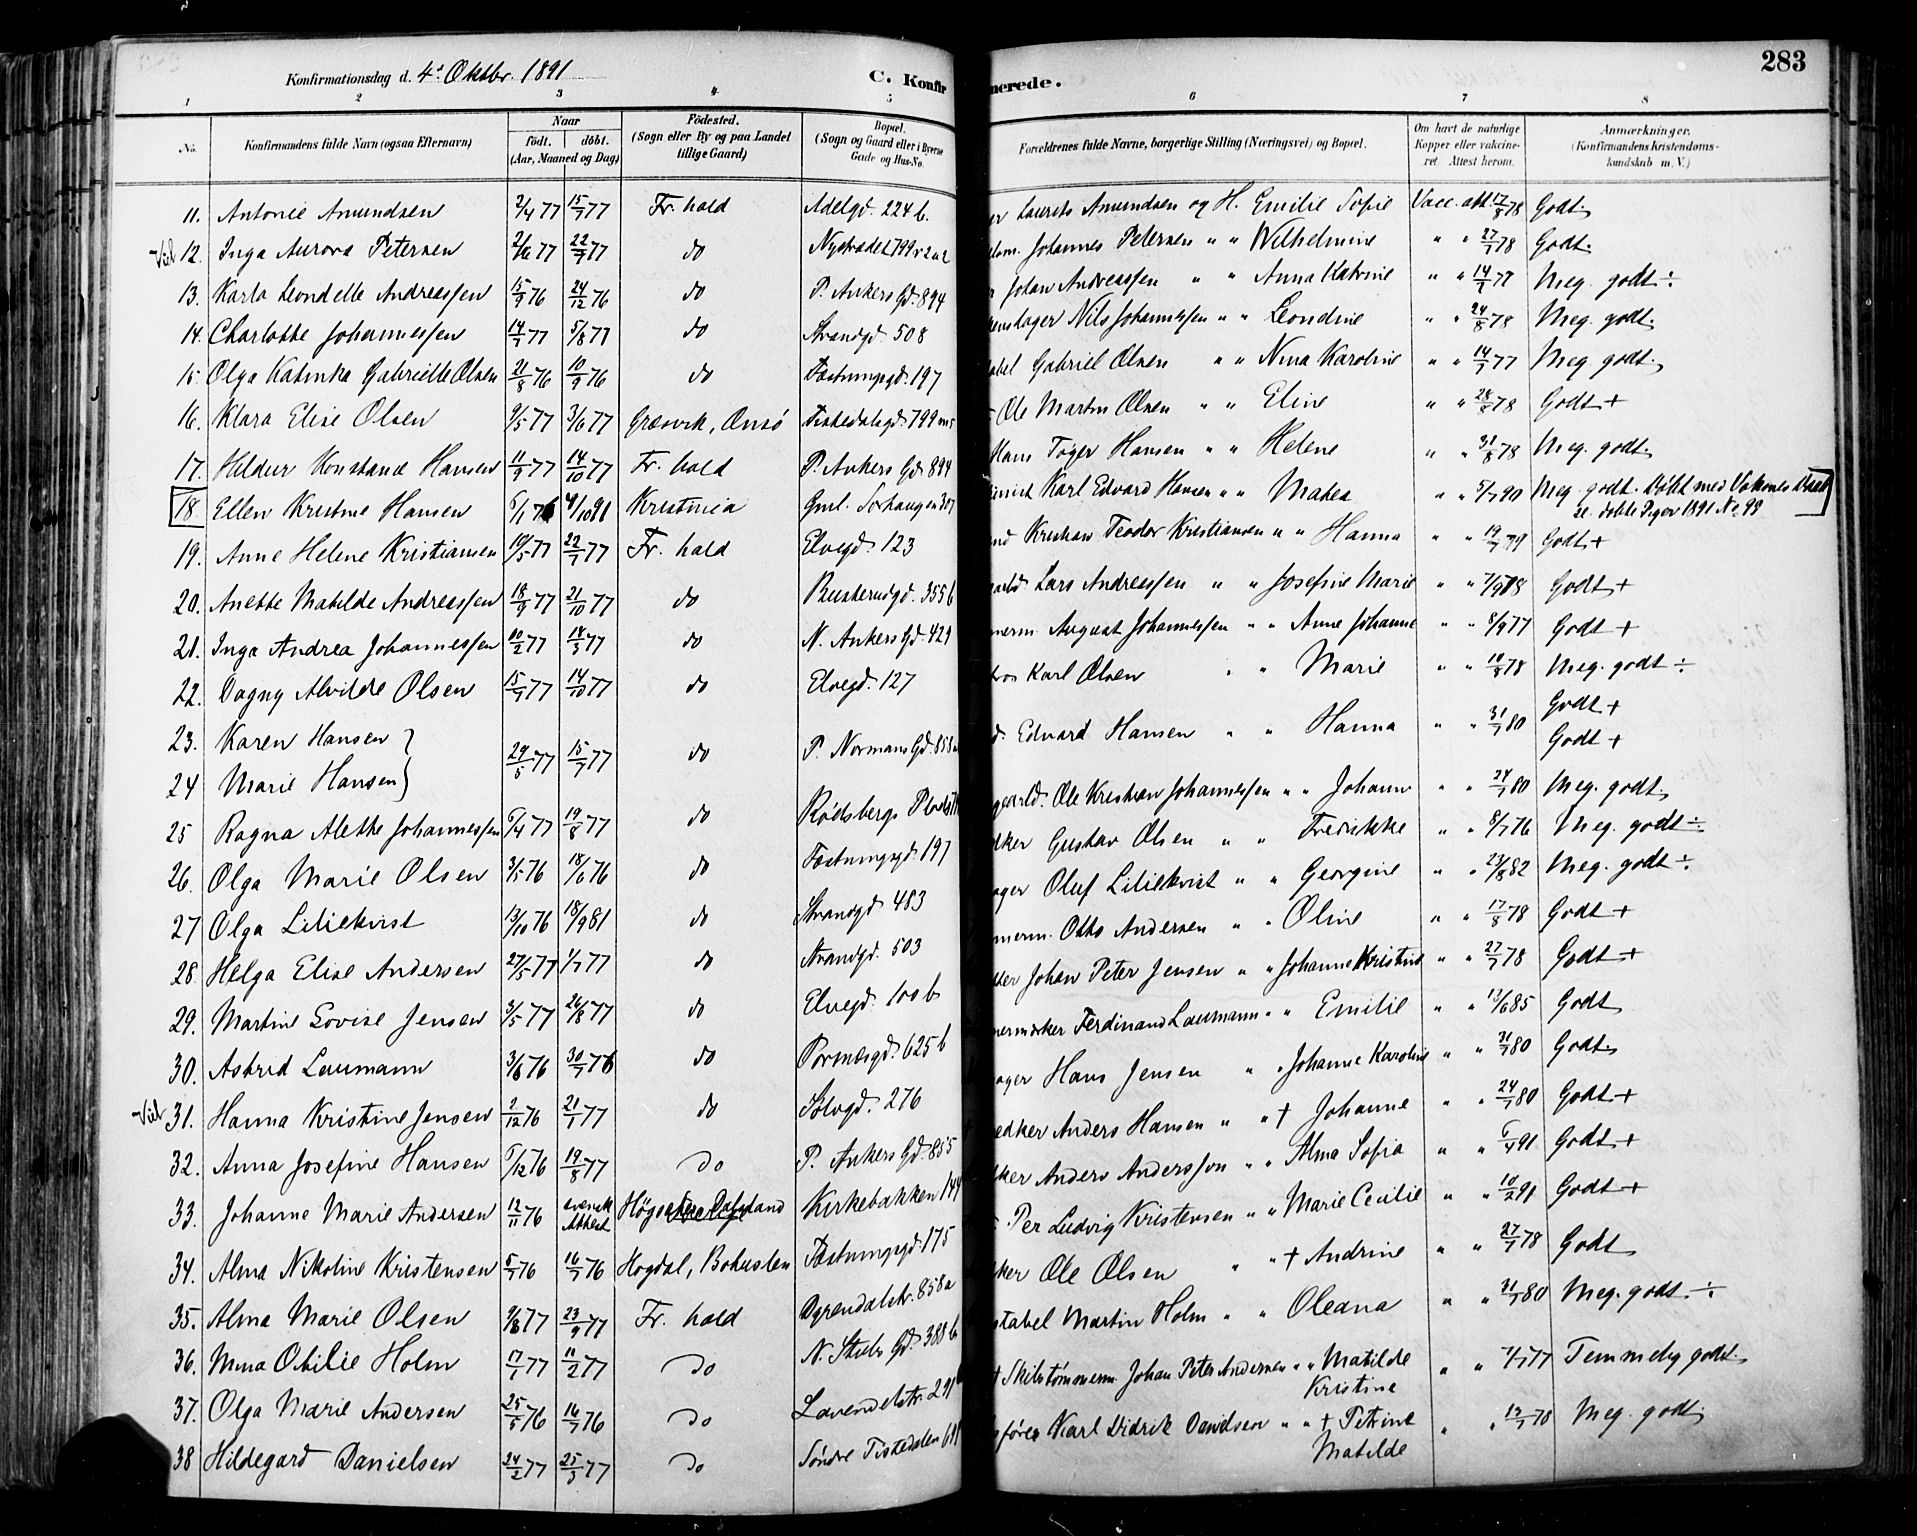 283
Konfirmationsdag d. 4de Oktbr. 1891
C. Konfirmerede.
1 2 3 4 5 6 7 8
No.
Konfirmandens fulde Navn (ogsaa Efternavn)
Naar
født. døbt.
(Aar, Maaned og Dag)
Fødested.
(Sogn eller By og paa Landet
tillige Gaard)
Bopæl.
(Sogn og Gaard eller i Byerne
Gade og Hus-No.
Forældrenes fulde Navne, borgerlige Stilling (Næringsvei) og Bopæl.
Om havt de naturlige
Kopper eller vakcine-
ret Attest herom.
Anmærkninger.
(Konfirmandens Kristendoms-
kundskab m. V.)
11. Antonie Amundsen 2/4 77 15/7 77 Fr. hald Adelgd. 224 b. Laurits Amundsen og H. Emilie Sofie Vacc. att 17/8 78 Godt.
12. Inga Aurora Petersen 22/7 77 do 799 Johannes Petersen " " Wilhelmine " " 27/7 78 Godt.
13. Karla Leondelle Andreassen 15/9 76 24/12 76 do P. Ankers Gd. 894 Johan Andreassen " " Anna Katrine " " 14/7 77 Meg. godt ÷
14. Charlotte Johannessen 14/7 77 5/8 77 do Strandgd. 508 Nils Johannessen " " Leondine " " 24/8 78 Meg. godt.
15. Olga Katinka Gabrielle Olsen 21/8 76 10/9 76 do Fæstningsgd. 197 Gabriel Olsen " " Nina Karoline " " 14/7 77 Meg godt.
16. Klara Elise Olsen 9/5 77 3/6 77 Græsvik, Onsö Tistedalsgd. 799 Ole Martin Olsen " " Eline " " 28/8 78 Godt +
17. Hildur Konstance Hansen 11/9 77 14/10 77 Fr. hald P. Ankers Gd. 894 Hans Töger Hansen " " Helene " " 31/8 78 Meg. godt.
18 Ellen Kristine Hansen 6/1 76 4/10 91 Kristinia Gml. Karl Edvard Hansen " " Mathea " " 5/7 90 Meg. godt. Döbt med Voksnes Daab
se. döbte Piger 1891 No. 99
19. Anne Helene Kristiansen 10/5 77 22/7 77 Fr. hald Elvegd. 123 Kristian Teodor Kristiansen " " Hanna " " 19/7 79 Godt +
20. Anette Matilde Andreassen 18/9 77 21/10 77 do Buskerudgd. 355 b Lars Andreassen " " Josefine Marie " " Godt +
21. Inga Andrea Johannessen 10/2 77 18/3 77 do N. Ankers Gd. 429 August Johannessen " " Anne Johanne " " 8/9 77 Godt +
22. Dagny Alvilde Olsen 15/7 77 14/10 77 do Elvegd. 127 Karl Olsen " " Marie " " 10/8 78 Meg. godt ÷
23. Karen Hansen } Godt +
24 Marie Hansen } 29/5 77 15/7 77 do P. Normans Gd. 858 Edvard Hansen " " Hanna " " 31/7 80 Godt +
25 Ragna Alette Johannessen 6/4 77 19/8 77 do Rödsbergs Ole Kristian Johannessen " " Johanne " " 24/7 80 Meg. godt.
26. Olga Marie Olsen 3/5 76 18/6 76 do Fæstningsgd. 197 Gustav Olsen " " Fredrikke " " 8/7 76 Meg. godt ÷
27 Olga Liliekvist 13/10 76 18/9 81 do Strandgd 483 Oluf Liliekvist " " Georgine " " 23/8 82 Meg. godt ÷
28. Helga Elise Andersen 27/5 77 1/7 77 do Strandgd. 503 Otto Andersen " " Oline " " 17/8 78 Godt +
29. Martine Lovise Jensen 3/5 77 26/8 77 do Elvegd. 100 b Johan Peter Jensen " " Johanne Kristine " " 27/7 78 Godt +
30. Astrid Laumann 3/6 76 30/7 76 do Pormesgd. 625 b Ferdinand Laumann " " Emilie " " 13/6 85 Godt
31. Hanna Kristine Jensen 2/12 76 21/1 77 do Sölvgd. 276 Hans Jensen " " Johanne Karoline " " 31/7 80 Godt.
32. Anna Josefine Hansen 6/12 76 19/8 77 do P. Ankers Gd. 855 Anders Hansen " " † Johanne " " 24/7 80 Godt +
33. Johanne Marie Andersen 12/11 76 svensk Attest Kirkebakken 144 Anders Andersson " " Alma Sofia " " 6/4 91 Godt +
34. Alma Nikoline Kristensen 5/7 76 16/7 76 Hogdal, Bohuslen Fæstningsgd. 175 Per Ludvig Kristensen " " Marie Cecilie " " 10/2 91 Godt +
35. Alma Marie Olsen 9/8 77 23/9 77 Fr. hald Dyrendalstr. 858a Ole Olsen " " † Andrine " " 27/7 78 Godt
36. Mina Otilie Holm 17/1 77 11/2 77 do N. Gd. 388 b Martin Holm " " Oleana " " 31/7 80 Meg. godt. ÷
37. Olga Marie Andersen 25/5 76 16/7 76 do Lavendelstr. 291 † Skibstömmerm. Johan Peter Andersen " " Matilde
Kristine " " Temmelig godt.
38 Hildegard Danielsen 24/2 77 25/3 77 do Söndre Tistedalen Karl Didrik Danielsen " " † Petrine
Matilde " " 13/7 78 Meg. godt.